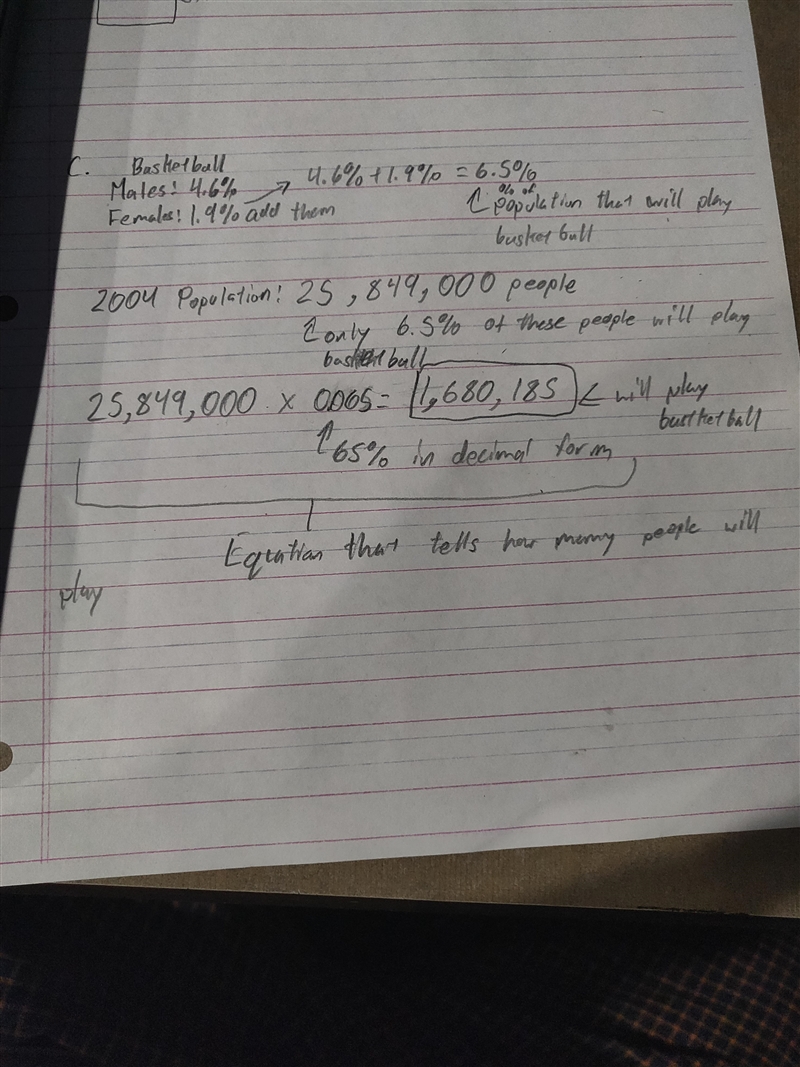 C. Basketball
Males: 4.6% → 4.6% + 1.9% = 6.5%
Females: 1.9% add them
↑ % of population that will play
busketball
2004 Population: 25,849,000 people
↑ only 6.5% of these people will play
basketball
25,849,000 x 0.065 = 1,680,185 ← will play
busketball
↑ 65% in decimal form
Equation that tells how many people will
play